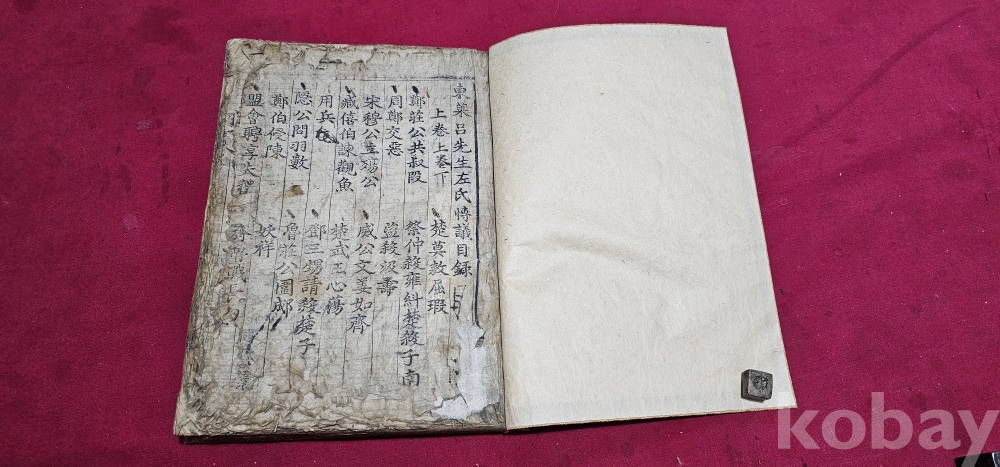 東萊呂先生左氏博議目錄
上卷上卷下
鄭莊公共叔段 楚莫敖屈瑕
周鄭交惡 祭仲殺雍糾楚殺子南
宋穆公立殤公 盜殺汲壽
臧僖伯諫觀魚 威公文姜如齊
用兵 楚武王心蕩
隱公問羽數 鄧三甥請殺楚子
鄭伯侵陳 魯莊公圍郕
盟會聘享失禮 妖祥
kobay